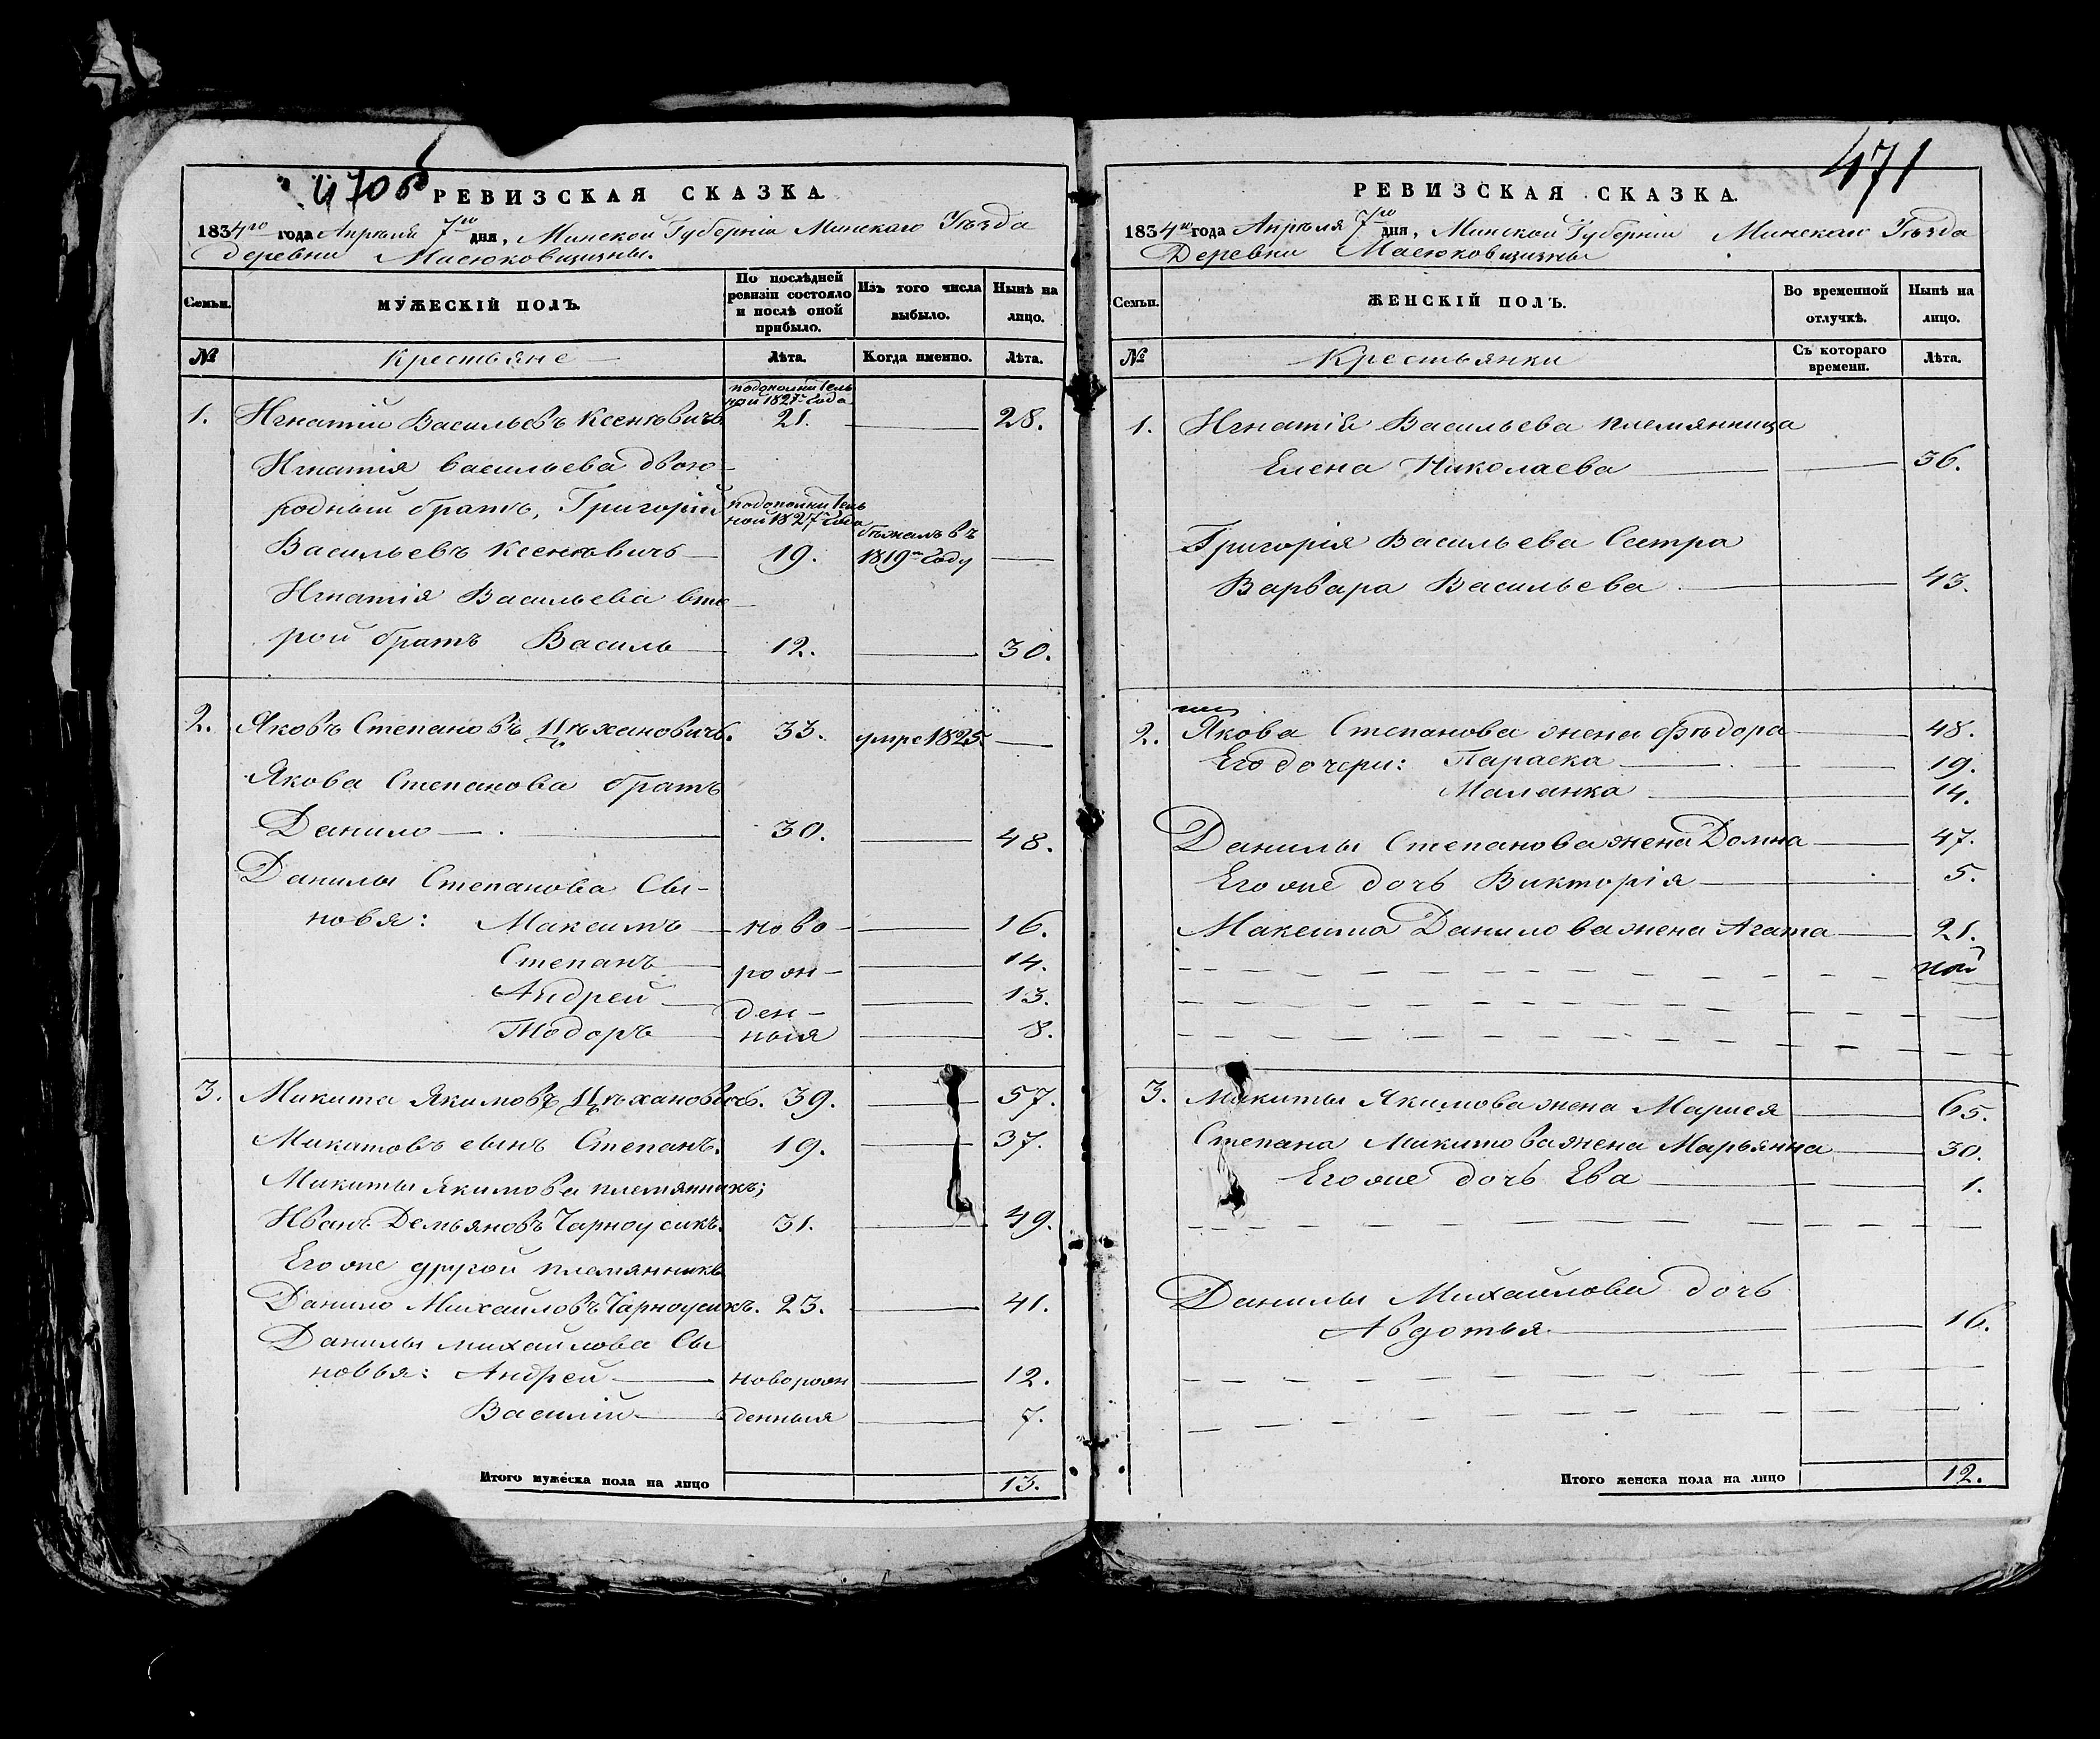 470об
РЕВИЗСКАЯ СКАЗКА
1834го года Апрѣля 7го дня, Минской Губерніи Минскаго Уѣзда
деревни Масюковщизны.
Семьи. МУЖЕСКІЙ ПОЛЪ. По послѣдней ревизіи состояло и послѣ оной прибыло. Изъ того числа выбыло. Нынѣ на лицо.
№ Крестьяне Лѣта. Когда именно. Лѣта.
подополнитель
ной 1827 года
1. Игнатій Васильевъ Ксенювичъ 21. 28.
Игнатія Васильева двою-
родный братъ, Григорій подополнитель
ной 1827 года
бѣжалъ въ
Васильевъ Ксенювичъ 19. 1819м Году
Игнатія Васильева вто-
рой братъ Василь 12. 30.
2. Яковъ Степановъ Цѣхановичъ. 33. умре 1825
Якова Степанова братъ
Данило 30. 48.
Данилы Степанова Сы-
новья: Максимъ ново- 16.
Степанъ рож- 14.
Андрей ден- 13.
Тюдоръ ныя 8.
3. Микита Якимовъ Цѣхановичъ. 39. 57.
Микитовъ сынъ Степанъ. 19. 37.
Микиты Якимова племянникъ;
Иванъ Демьяновъ Чарноусикъ. 31. 49.
Его же другой племянникъ
Данило Михайловъ Чарноусикъ. 23. 41.
Данилы Михайлова Сы
новья: Андрей новорож 12.
Василій денныя 7.
Итого мужеска пола на лицо 13.
471
РЕВИЗСКАЯ СКАЗКА.
1834го года Апрѣля 7го дня, Минской Губерніи Минскаго Уѣзда
Деревни Масюковщизны
Семьи. ЖЕНСКІЙ ПОЛЪ. Во временной отлучкѣ. Нынѣ на лицо.
№ Крестьянки Съ котораго времени. Лѣта.
1. Игнатія Васильева племянница
Елена Николаева 36.
Григорія Васильева Сестра
Варвара Васильева 43.
2. Якова Степанова жена Ѳѣдора 48.
Его дочери: Параска 19.
Маланка 14.
Данилы Степанова жена Домна 47.
Его же дочь Викторія 5.
Максима Данилова жена Агата 21.
3. Микиты Якимова жена Марися 65.
Степана Микитова жена Марьянна 30.
Его же дочь Ева 1.
Данилы Михайлова дочь
Авдотья 16.
Итого женска пола на лицо 12.